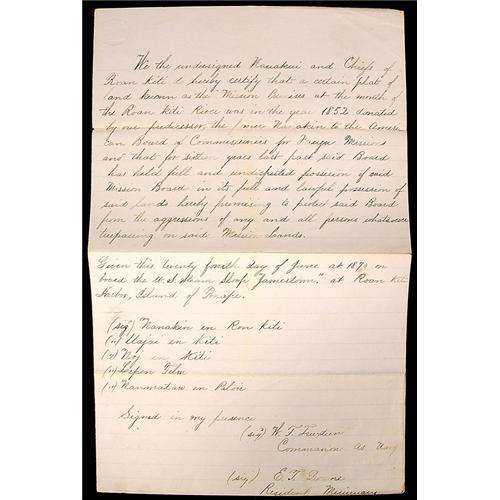 We the undersigned Nanakin and Chiefs of
Roan Kiti d hereby certify that a certain plat of
land known as the Mission Premises at the mouth of
the Roan Kiti River was in the year 1852 donated
by our predecessor, the former Nanakin to the Ameri
can Board of Commissioners for Foreign Missions
and that for sixteen years last past said Board
has held full and undisputed possession of said
Mission Board in its full and lawful possession of
said lands hereby promising to protect said Board
from the aggressions of any and all persons whatsoever
trespassing on said Mission Lands.
Given this twenty fourth day of June at 1870 on
board the U.S. Steam Sloop "Jamestown." at Roan Kiti
Harbor, Island of Ponape.
(sig) "Nanakin en Ron Kiti
(") Najai en Kiti
(") Noj en Kiti
(") Lepen
(") Nanmatau en Paloi
Signed in my presence
(sig) W. T. Truxtun
Commander U.S. Navy
(sig) E. T. Doane
Resident Missionary